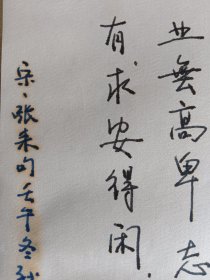 业無高卑志
有求安得闲
宋·张耒句壬午冬